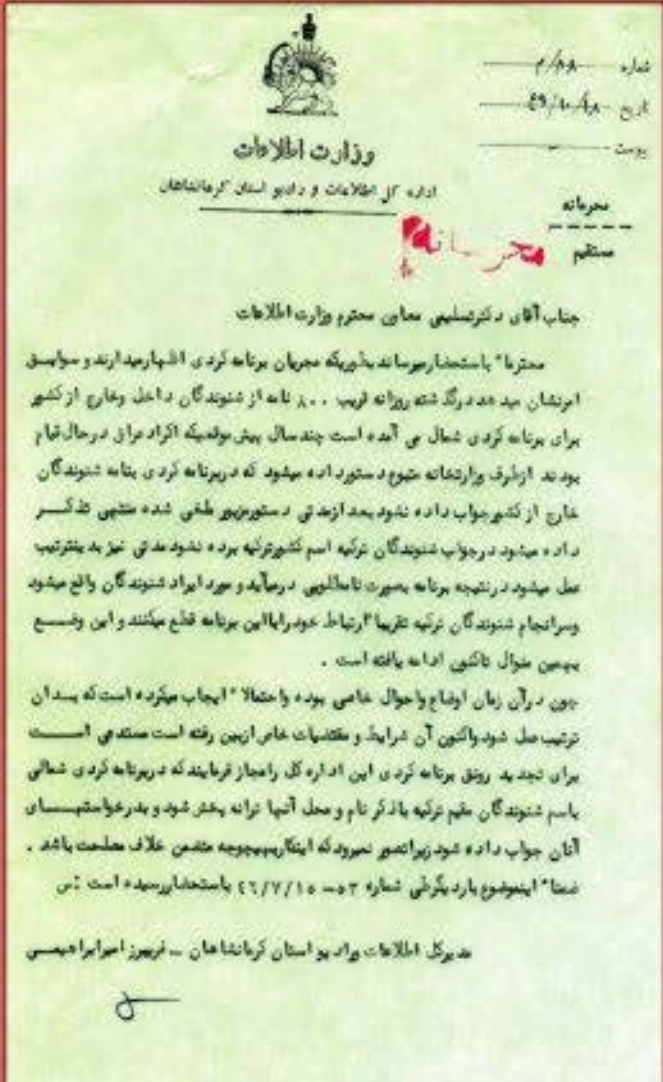 شماره ۸۸/م
تاریخ
پیوست
وزارت اطلاعات
اداره کل اطلاعات و رادیو استان کرمانشاهان
محرمانه
مستقیم
محرمانه
جناب آقای دکتر تسلیمی معاون محترم وزارت اطلاعات
محترما" باستحضار میرساند بطوریکه مجریان برنامه کردی اظهار میدارند و سوابق
امر نشان میدهد در گذشته روزانه قریب ۸۰۰ نامه از شنوندگان داخل و خارج از کشور
برای برنامه کردی شمال می آمده است چند سال پیش موقعیکه اکراد عراق در حال قیام
بودند از طرف وزارتخانه متبوع دستور داده میشود که در برنامه کردی بنامه شنوندگان
خارج از کشور جواب داده نشود بعد از مدتی دستور مزبور ملغی شده منتهی تذکر
داده میشود در جواب شنوندگان ترکیه اسم کشور ترکیه برده نشود مدتی نیز بدینترتیب
عمل میشود در نتیجه برنامه بصورت نامطلوبی در میآید و مورد ایراد شنوندگان واقع میشود
و سرانجام شنوندگان ترکیه تقریبا" ارتباط خود را با این برنامه قطع میکنند و این وضع
بهمین منوال تاکنون ادامه یافته است .
چون در آن زمان اوضاع و احوال خاصی بوده و احتمالا" ایجاب میکرده است که بدان
ترتیب عمل شود و اکنون آن شرایط و مقتضیات خاص از بین رفته است مستدعی است
برای تجدید رونق برنامه کردی این اداره کل را مجاز فرمایند که در برنامه کردی شمالی
باسم شنوندگان مقیم ترکیه با ذکر نام و محل آنها ترانه پخش شود و بدرخواستهای
آنان جواب داده شود زیرا تصور نمیرود که اینکار بهیچوجه متضمن خلاف مصلحت باشد .
ضمنا" اینموضوع بار دیگر طی شماره ۵۳-۴۶/۷/۱۵ باستحضار رسیده است
مدیرکل اطلاعات و رادیو استان کرمانشاهان - فریبرز امیرابراهیمی